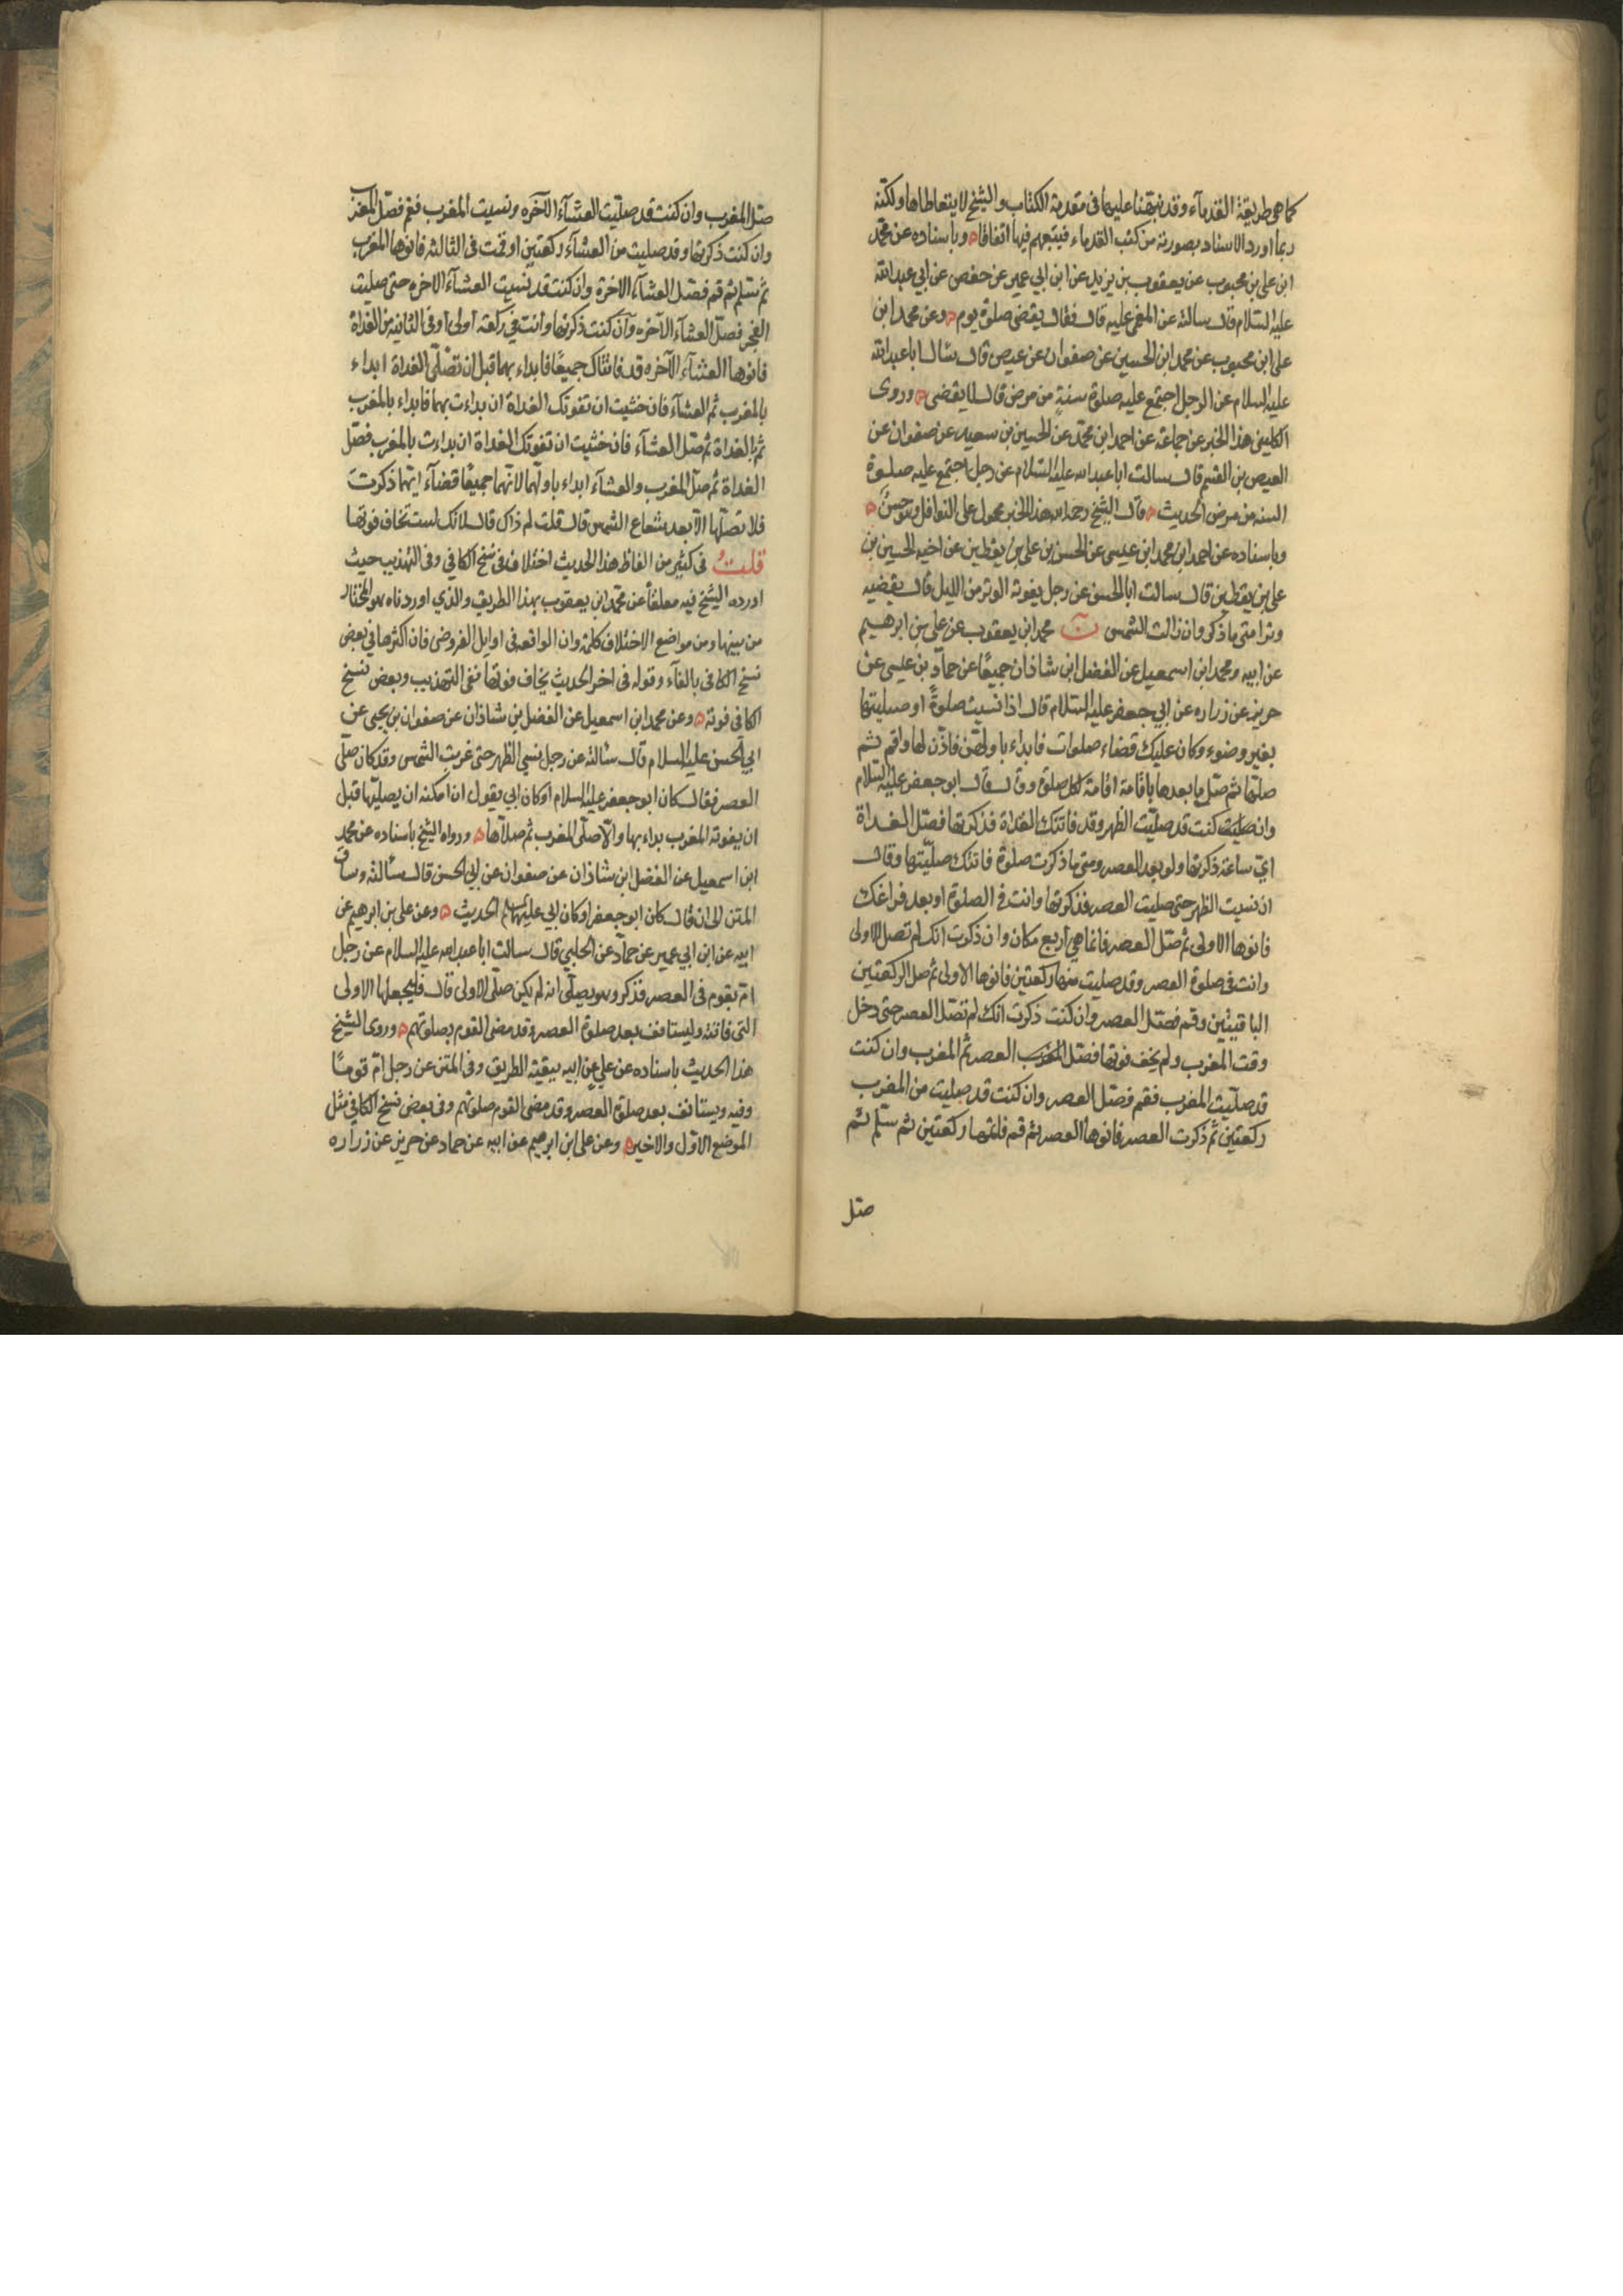 كما هي طريقة القدمآء وقد نبهنا عليها في مقدمة الكتاب والشيخ لا يتعاطاها ولكنه
ربما اورد الاسناد بصورته من كتب القدماء فيتبعهم فيها اتفاقا ۵ وباسناده عن محمد
ابن علي بن محبوب عن يعقوب بن يزيد عن ابن ابي عمير عن حفص عن ابي عبد الله
عليه السلام قال سالته عن المغمى عليه قال فقال يقضى صلوة يوم ۵ وعن محمد ابن
علي ابن محبوب عن محمد ابن الحسين عن صفوان عن عيص قال سال ابا عبد الله
عليه السلام عن الرجل اجتمع عليه صلوة سنةٍ من مرض قال لا يقضى ۵ وروى
الكليني هذا الخبر عن جماعة عن احمد ابن محمد عن الحسين بن سعيد عن صفوان عن
العيص بن القسم قال سالت ابا عبد الله عليه السلام عن رجل اجتمع عليه صلوة
السنه من مرض الحديث ۵ قال الشيخ رحمه الله هذا الخبر محمول على النوافل وهو حسنٌ ۵
وباسناده عن احمد ابن محمد ابن عيسى عن الحسن بن علي بن يقطين عن اخيه الحسين بن
علي بن يقطين قال سالت ابا الحسن عن رجل يفوته الوتر من الليل قال يقضيه
وترا متى ما ذكر وان زالت الشمس ن محمد ابن يعقوب عن علي بن ابرهيم
عن ابيه ومحمد ابن اسمعيل عن الفضل ابن شاذان جميعًا عن حمّاد بن عيسى عن
حريز عن زراره عن ابي جعفر عليه السلام قال اذا نسيت صلوةً او صليتها
بغير وضوء وكان عليك قضاء صلوات فابداء باولهن فاذّن لها واقم ثم
صلّها ثم صلّ ما بعدها باقامة اقامة لكل صلوة وقال قال ابو جعفر عليه السلام
وان صليت كنت قد صلّيت الظهر وقد فاتتك الغداة فذكرتها فصلّ الغداة
ايّ ساعة ذكرتها ولو بعد العصر ومتى ما ذكرت صلوة فاتتك صلّيتها وقال
ان نسيت الظهر حتى صليت العصر فذكرتها وانت في الصلوة او بعد فراغك
فانوها الاولى ثم صلّ العصر فانما هي اربع مكان وان ذكرت انك لم تصل الاولى
وانت في صلوة العصر وقد صليت منها ركعتين فانوها الاولى ثم صل الركعتين
الباقيتين وقم فصلّ العصر وان كنت ذكرت انك لم تصلّ العصر حتى دخل
وقت المغرب ولم يخف فوتها فصلّ المغرب العصر ثم المغرب وان كنت
قد صلّيت المغرب فقم فصلّ العصر وان كنت قد صليت من المغرب
ركعتين ثم ذكرت العصر فانوها العصر ثم قم فاتمها ركعتين ثم سلّم ثم
صلّ
صلّ المغرب وان كنت قد صلّيت العشآء الآخره ونسيت المغرب فقم فصلّ المغرب
وان كنت ذكرتها وقد صليت من العشآء ركعتين او قمت في الثالثه فانوها المغرب
ثم تسلّم ثم قم فصلّ العشآء الاخرة وان كنت قد نسيت العشآء الاخره حتى صليت
الفجر فصلّ العشآء الآخره وان كنت ذكرتها وانت في ركعة اولى او في الثانيه من الغداة
فانوها العشآء الآخره قد فاتتاك جميعًا فابداء بهما قبل ان تصلّي الغداة ابداء
بالمغرب ثم العشآء فان خشيت ان تفوتك الغداة ان بداءت بهما فابداء بالمغرب
ثم بالغداة ثم صلّ العشآء فان خشيت ان تفوتك الغداة ان بداءت بالمغرب فصلّ
الغداة ثم صلّ المغرب والعشآء ابداء باولهما لانهما جميعًا قضآء ايّهما ذكرتَ
فلا تصلّها الّا بعد شعاع الشمس قال قلت لم ذاك قال لانك لست تخاف فوتها
قلتُ في كثير من الفاظ هذا الحديث اختلاف في نسخ الكافي وفي التهذيب حيث
اورده الشيخ فيه معلقًا عن محمد ابن يعقوب بهذا الطريق والذي اوردناه هو المختار
من بينها ومن مواضع الاختلاف كلمة وان الواقعه في اوايل الفروض فان اكثرها في بعض
نسخ الكافي بالفآء وقوله في اخر الحديث يخاف فوتها ففي التهذيب وبعض نسخ
الكافي فوته ۵ وعن محمد ابن اسمعيل عن الفضل بن شاذان عن صفوان بن يحيى عن
ابي الحسن عليه السلام قال سئالته عن رجل نسي الظهر حتى غربت الشمس وقد كان صلّى
العصر فقال كان ابو جعفر عليه السلام او كان ابي يقول ان امكنه ان يصليها قبل
ان يفوته المغرب بداء بها والّا صلّى المغرب ثم صلّاها ۵ ورواه الشيخ باسناده عن محمد
ابن اسمعيل عن الفضل ابن شاذان عن صفوان عن ابي الحسن قال سئالته وساق
المتن الى ان قال كان ابو جعفر او كان ابي عليهما السلم الحديث ۵ وعن علي بن ابرهيم عن
ابيه عن ابن ابي عمير عن حمّاد عن الحلبي قال سالت ابا عبد الله عليه السلام عن رجل
امّ بقوم في العصر فذكر وهو يصلّي انه لم يكن صلّى الاولى قال فليجعلها الاولى
التي فاتته وليستانف بعد صلوة العصر وقد مضى القوم بصلوتهم ۵ وروى الشيخ
هذا الحديث باسناده عن علي عن ابيه ببقيّة الطريق وفي المتن عن رجل امّ قومًا
وفيه ويستانف بعد صلوة العصر وقد مضى القوم صلوتهم وفي بعض نسخ الكافي مثل
الموضع الاوّل والاخير ۵ وعن علي ابن ابرهيم عن ابيه عن حماد عن حريز عن زراره